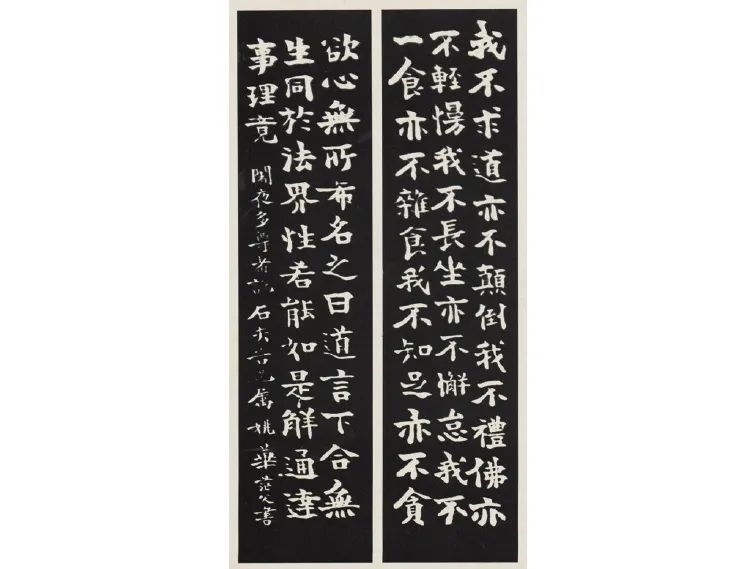 我不求道亦不顛倒我不禮佛亦
不輕慢我不長坐亦不懈怠我不
一食亦不雜食我不知足亦不貪
欲心無所希名之曰道言下合無
生同於法界性若能如是解通達
事理竟
闍夜多尊者說 石 吉 屬 姚華茫父書